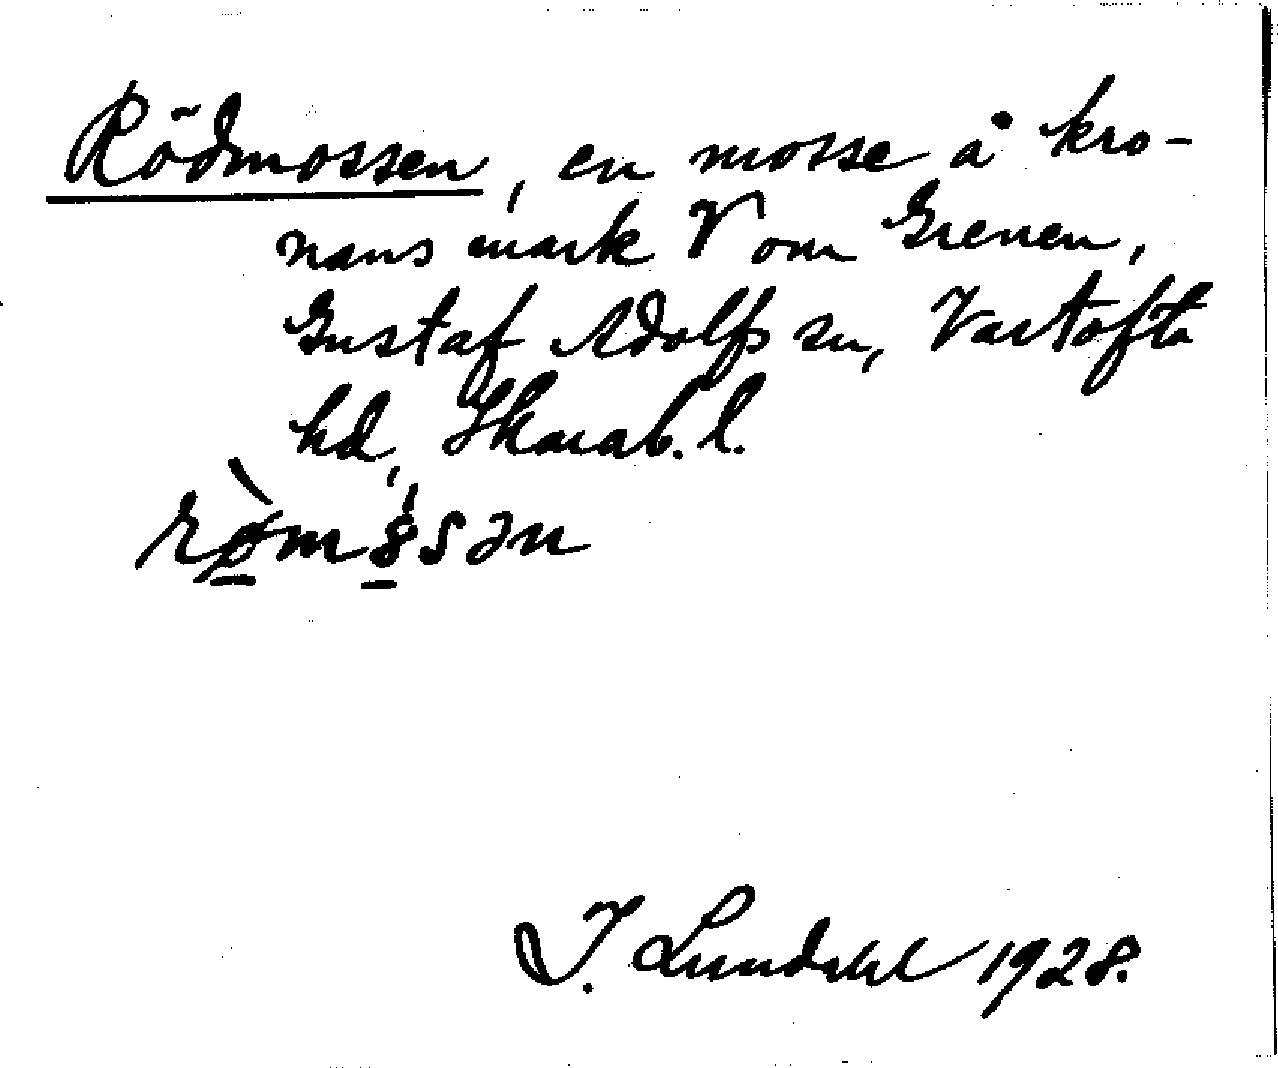 Rödmossen, en mosse å kro-
nans mark V om Grenen,
Gustaf Adolfs sn, Vartofta
hd, Skarab. l.
I. Lundahl 1928.